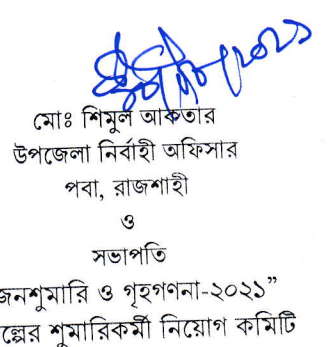 মোঃ শিমুল আকতার
উপজেলা নির্বাহী অফিসার
পবা, রাজশাহী
ও
সভাপতি
জনশুমারি ও গৃহগণনা-২০২১”
ল্পের শুমারিকর্মী নিয়োগ কমিটি